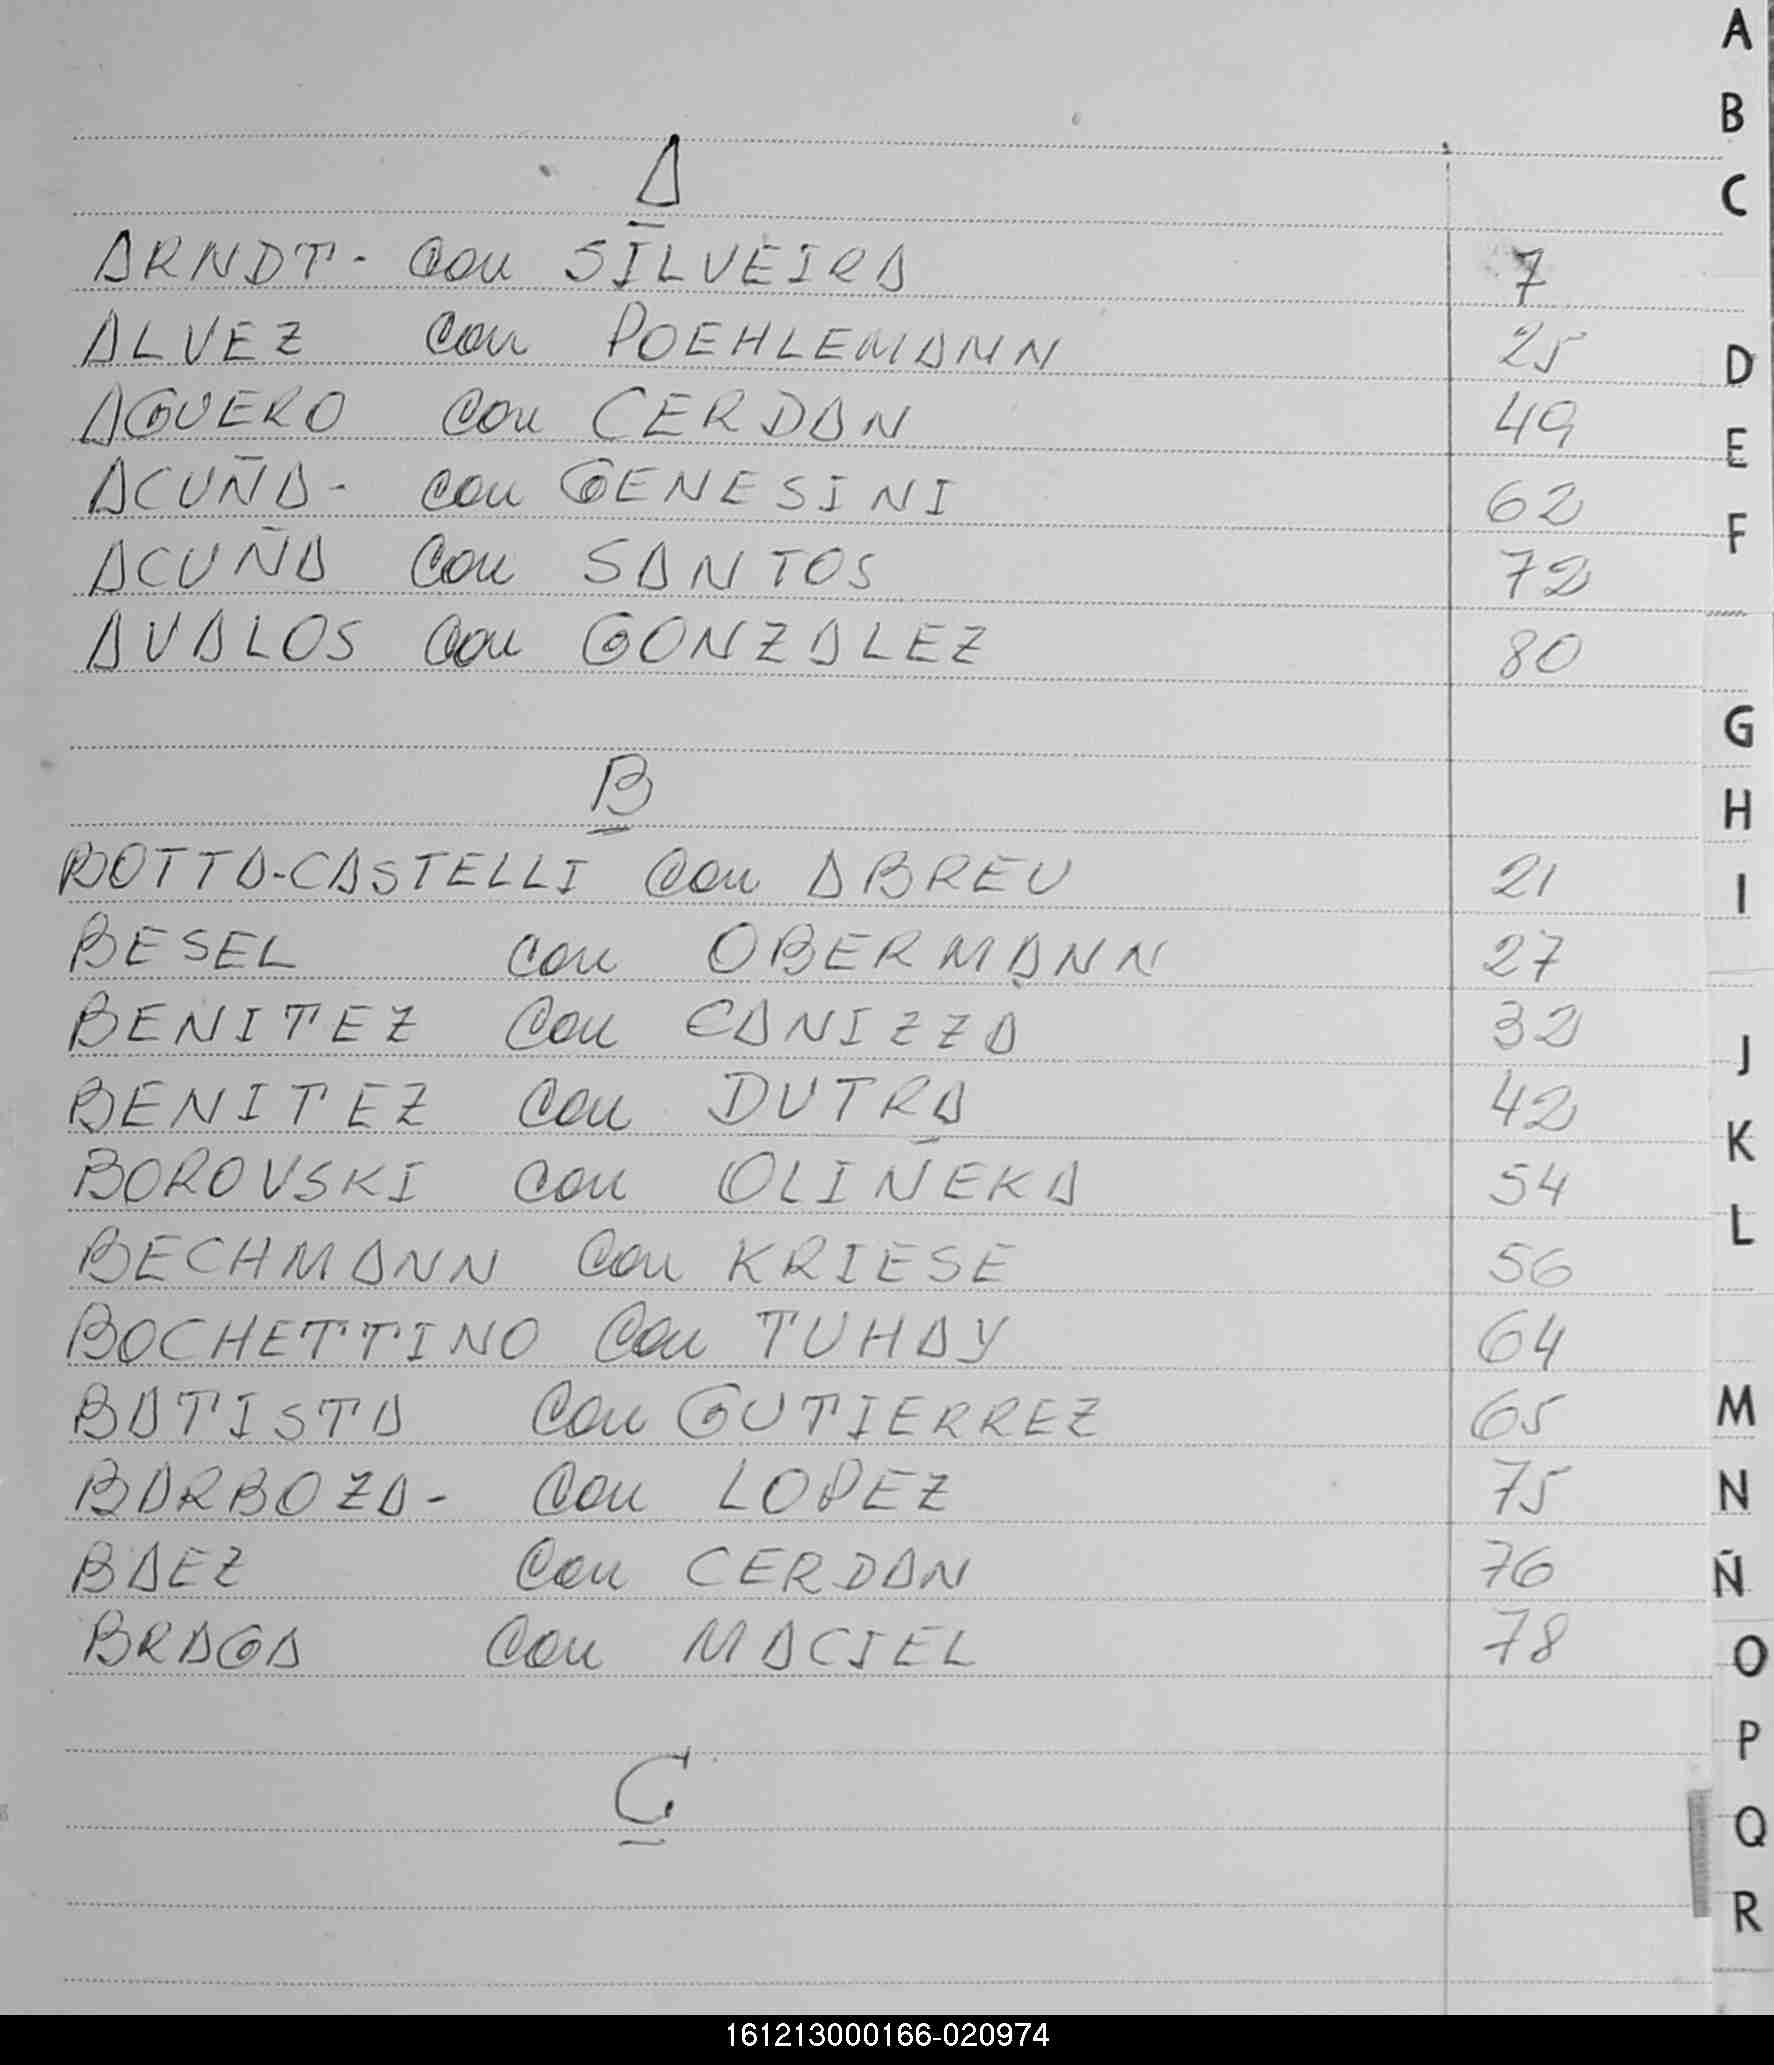 A
B
C
D
E
F
G
H
I
J
K
L
M
N
Ñ
O
P
Q
R
A
ARNDT- con SILVEIRA 7
ALVEZ con POEHLEMANN 25
AGUERO con CERDAN 49
ACUÑA- con GENESINI 62
ACUÑA con SANTOS 72
AVALOS con GONZALEZ 80
B
BOTTA-CASTELLI con ABREU 21
BESEL con OBERMANN 27
BENITEZ con CANIZZA 32
BENITEZ con DUTRA 42
BOROVSKI con OLIÑEKA 54
BECHMANN con KRIESE 56
BOCHETTINO con TUHAY 64
BATISTA con GUTIERREZ 65
BARBOZA- con LOPEZ 75
BAEZ con CERDAN 76
BRAGA con MACIEL 78
C
161213000166-020974